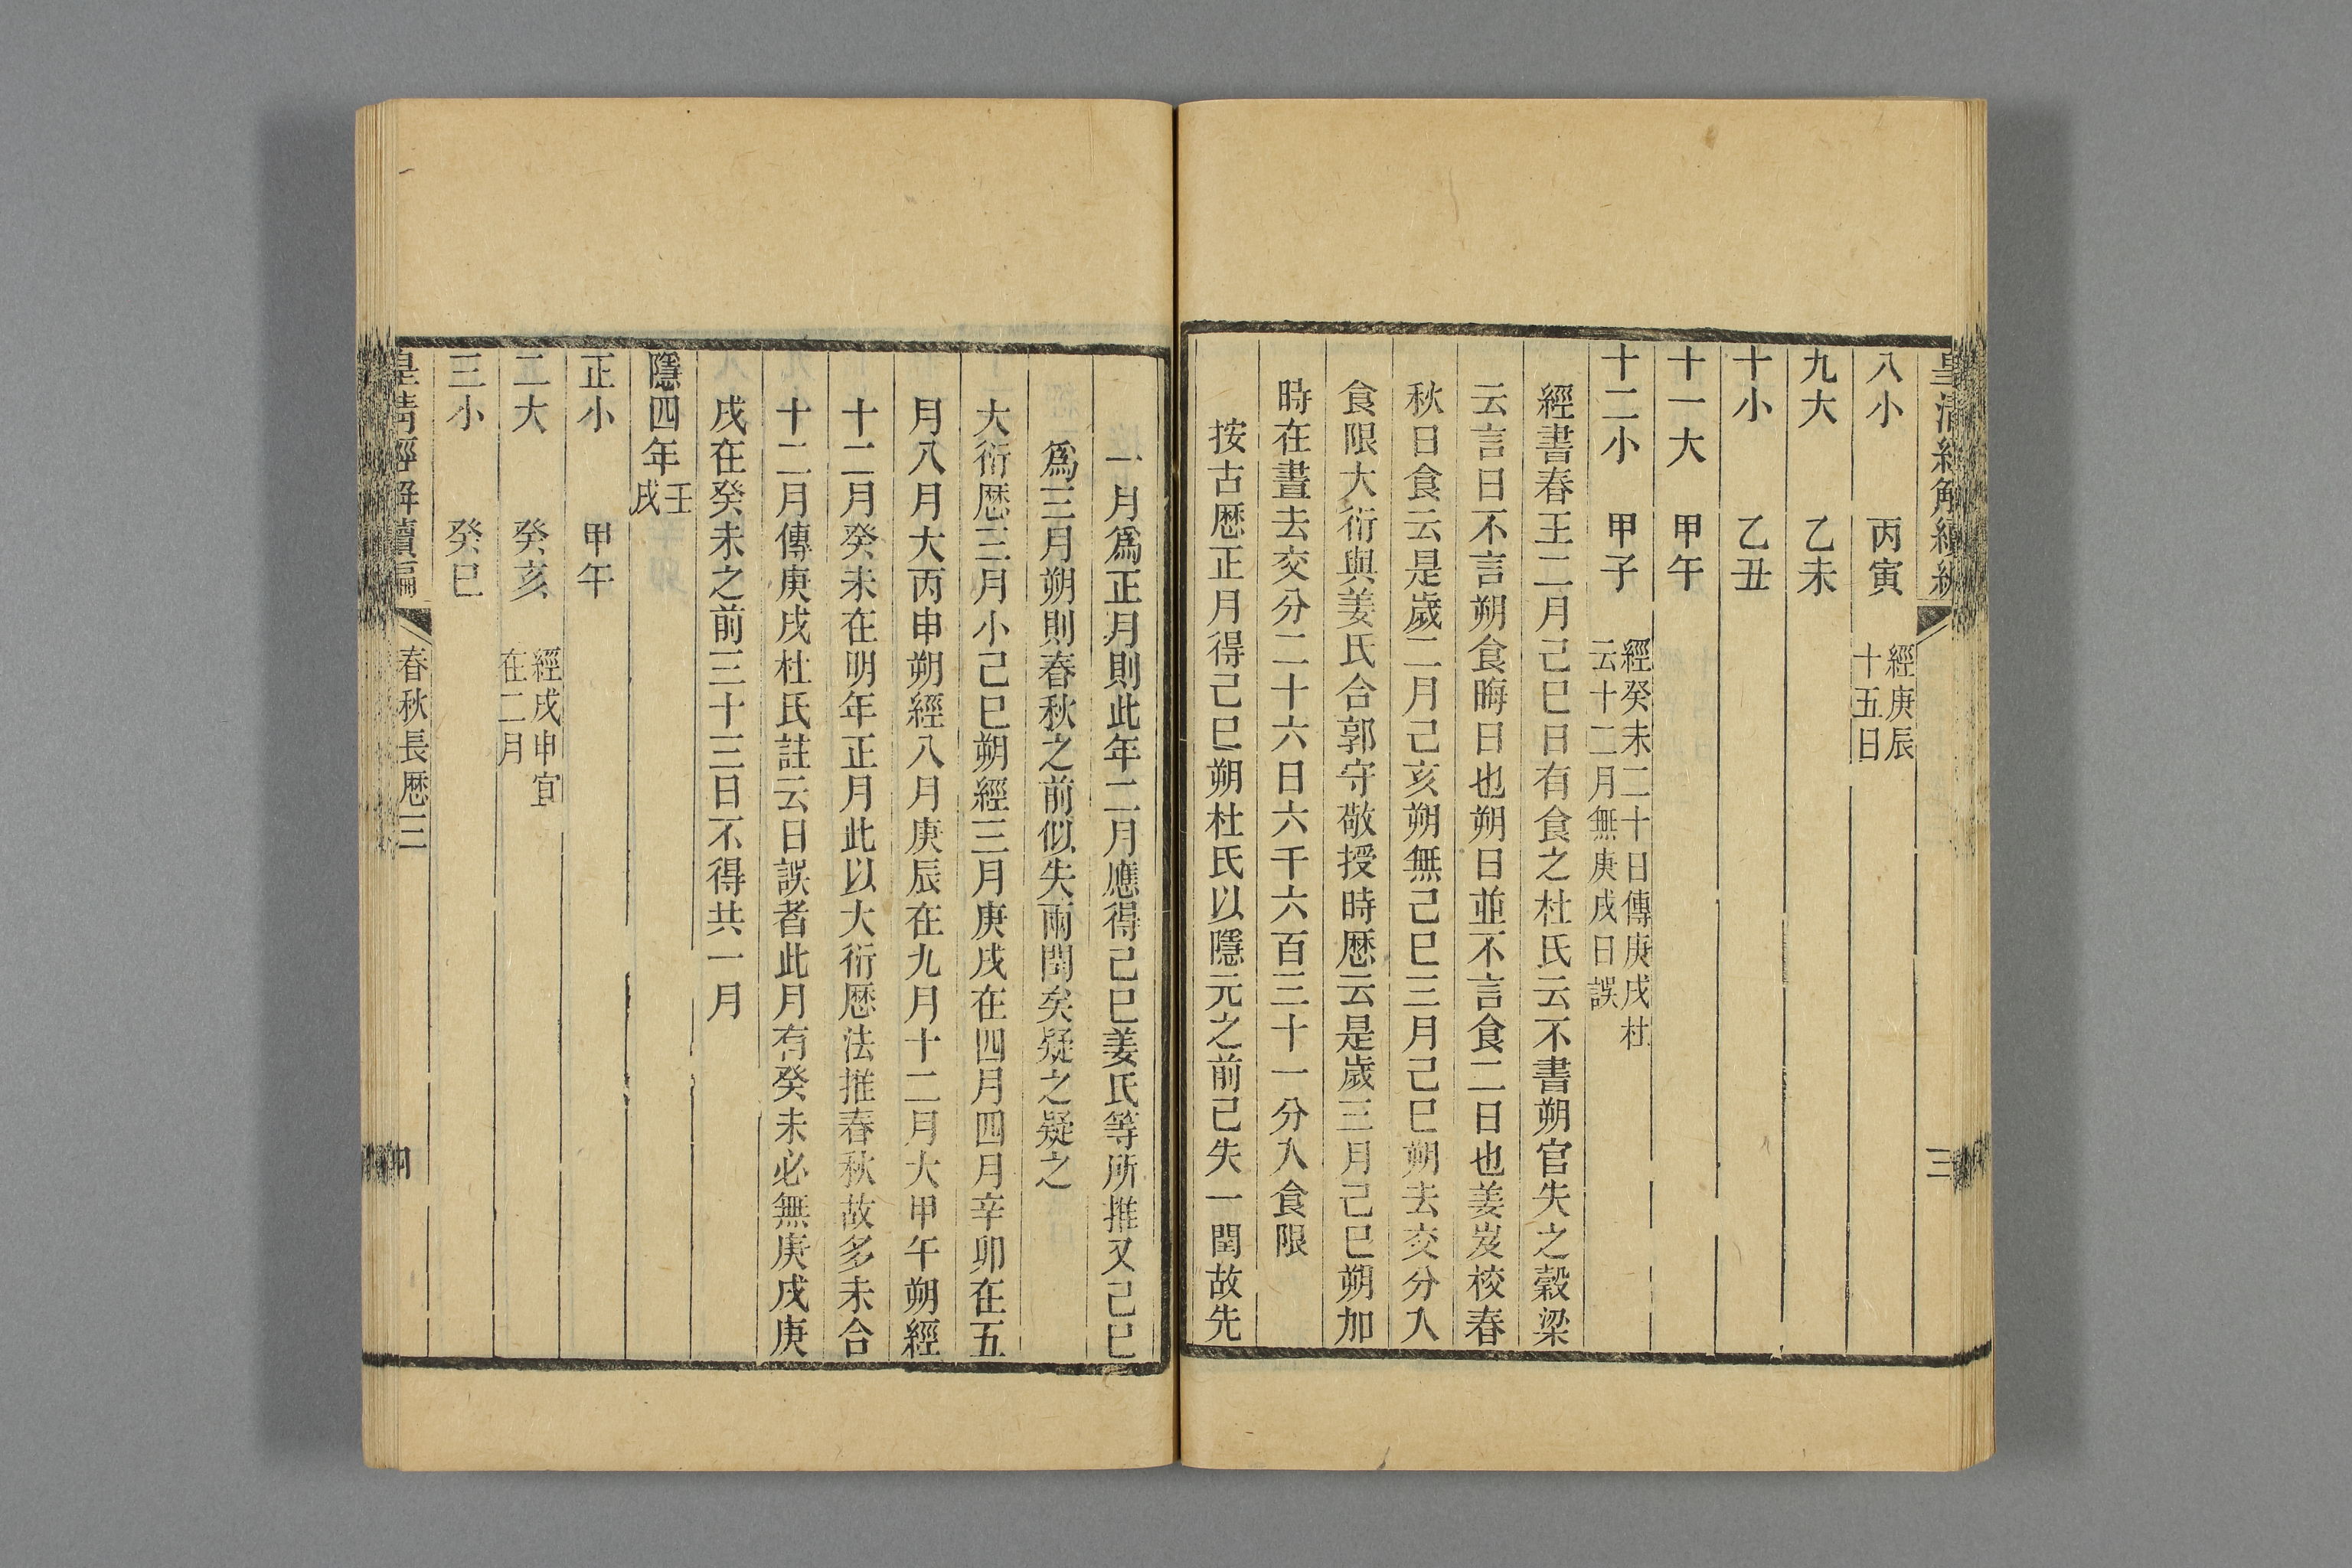 皇清經解續編
三
八小 丙寅 經庚辰
十五日
九大 乙未
十小 乙丑
十一大 甲午
十二小 甲子 經癸未二十日傳庚戌杜
云十二月無庚戌日誤
經書春王二月己巳日有食之杜氏云不書朔官失之穀梁
云言日不言朔食晦日也朔日並不言食二日也姜岌校春
秋日食云是歲二月己亥朔無己巳三月己巳朔去交分入
食限大衍與姜氏合郭守敬授時厯云是歲三月己巳朔加
時在晝去交分二十六日六千六百三十一分入食限
按古厯正月得己巳朔杜氏以隱元之前已失一閏故先
一月爲正月則此年二月應得己巳姜氏等所推又己巳
爲三月朔則春秋之前似失兩閏矣疑之疑之
大衍厯三月小己巳朔經三月庚戌在四月四月辛卯在五
月八月大丙申朔經八月庚辰在九月十二月大甲午朔經
十二月癸未在明年正月此以大衍厯法推春秋故多未合
十二月傳庚戌杜氏註云日誤者此月有癸未必無庚戌庚
戌在癸未之前三十三日不得共一月
隱四年壬
戌
正小 甲午
二大 癸亥 經戌申宜
在二月
三小 癸巳
皇清經解續編
春秋長厯三
四